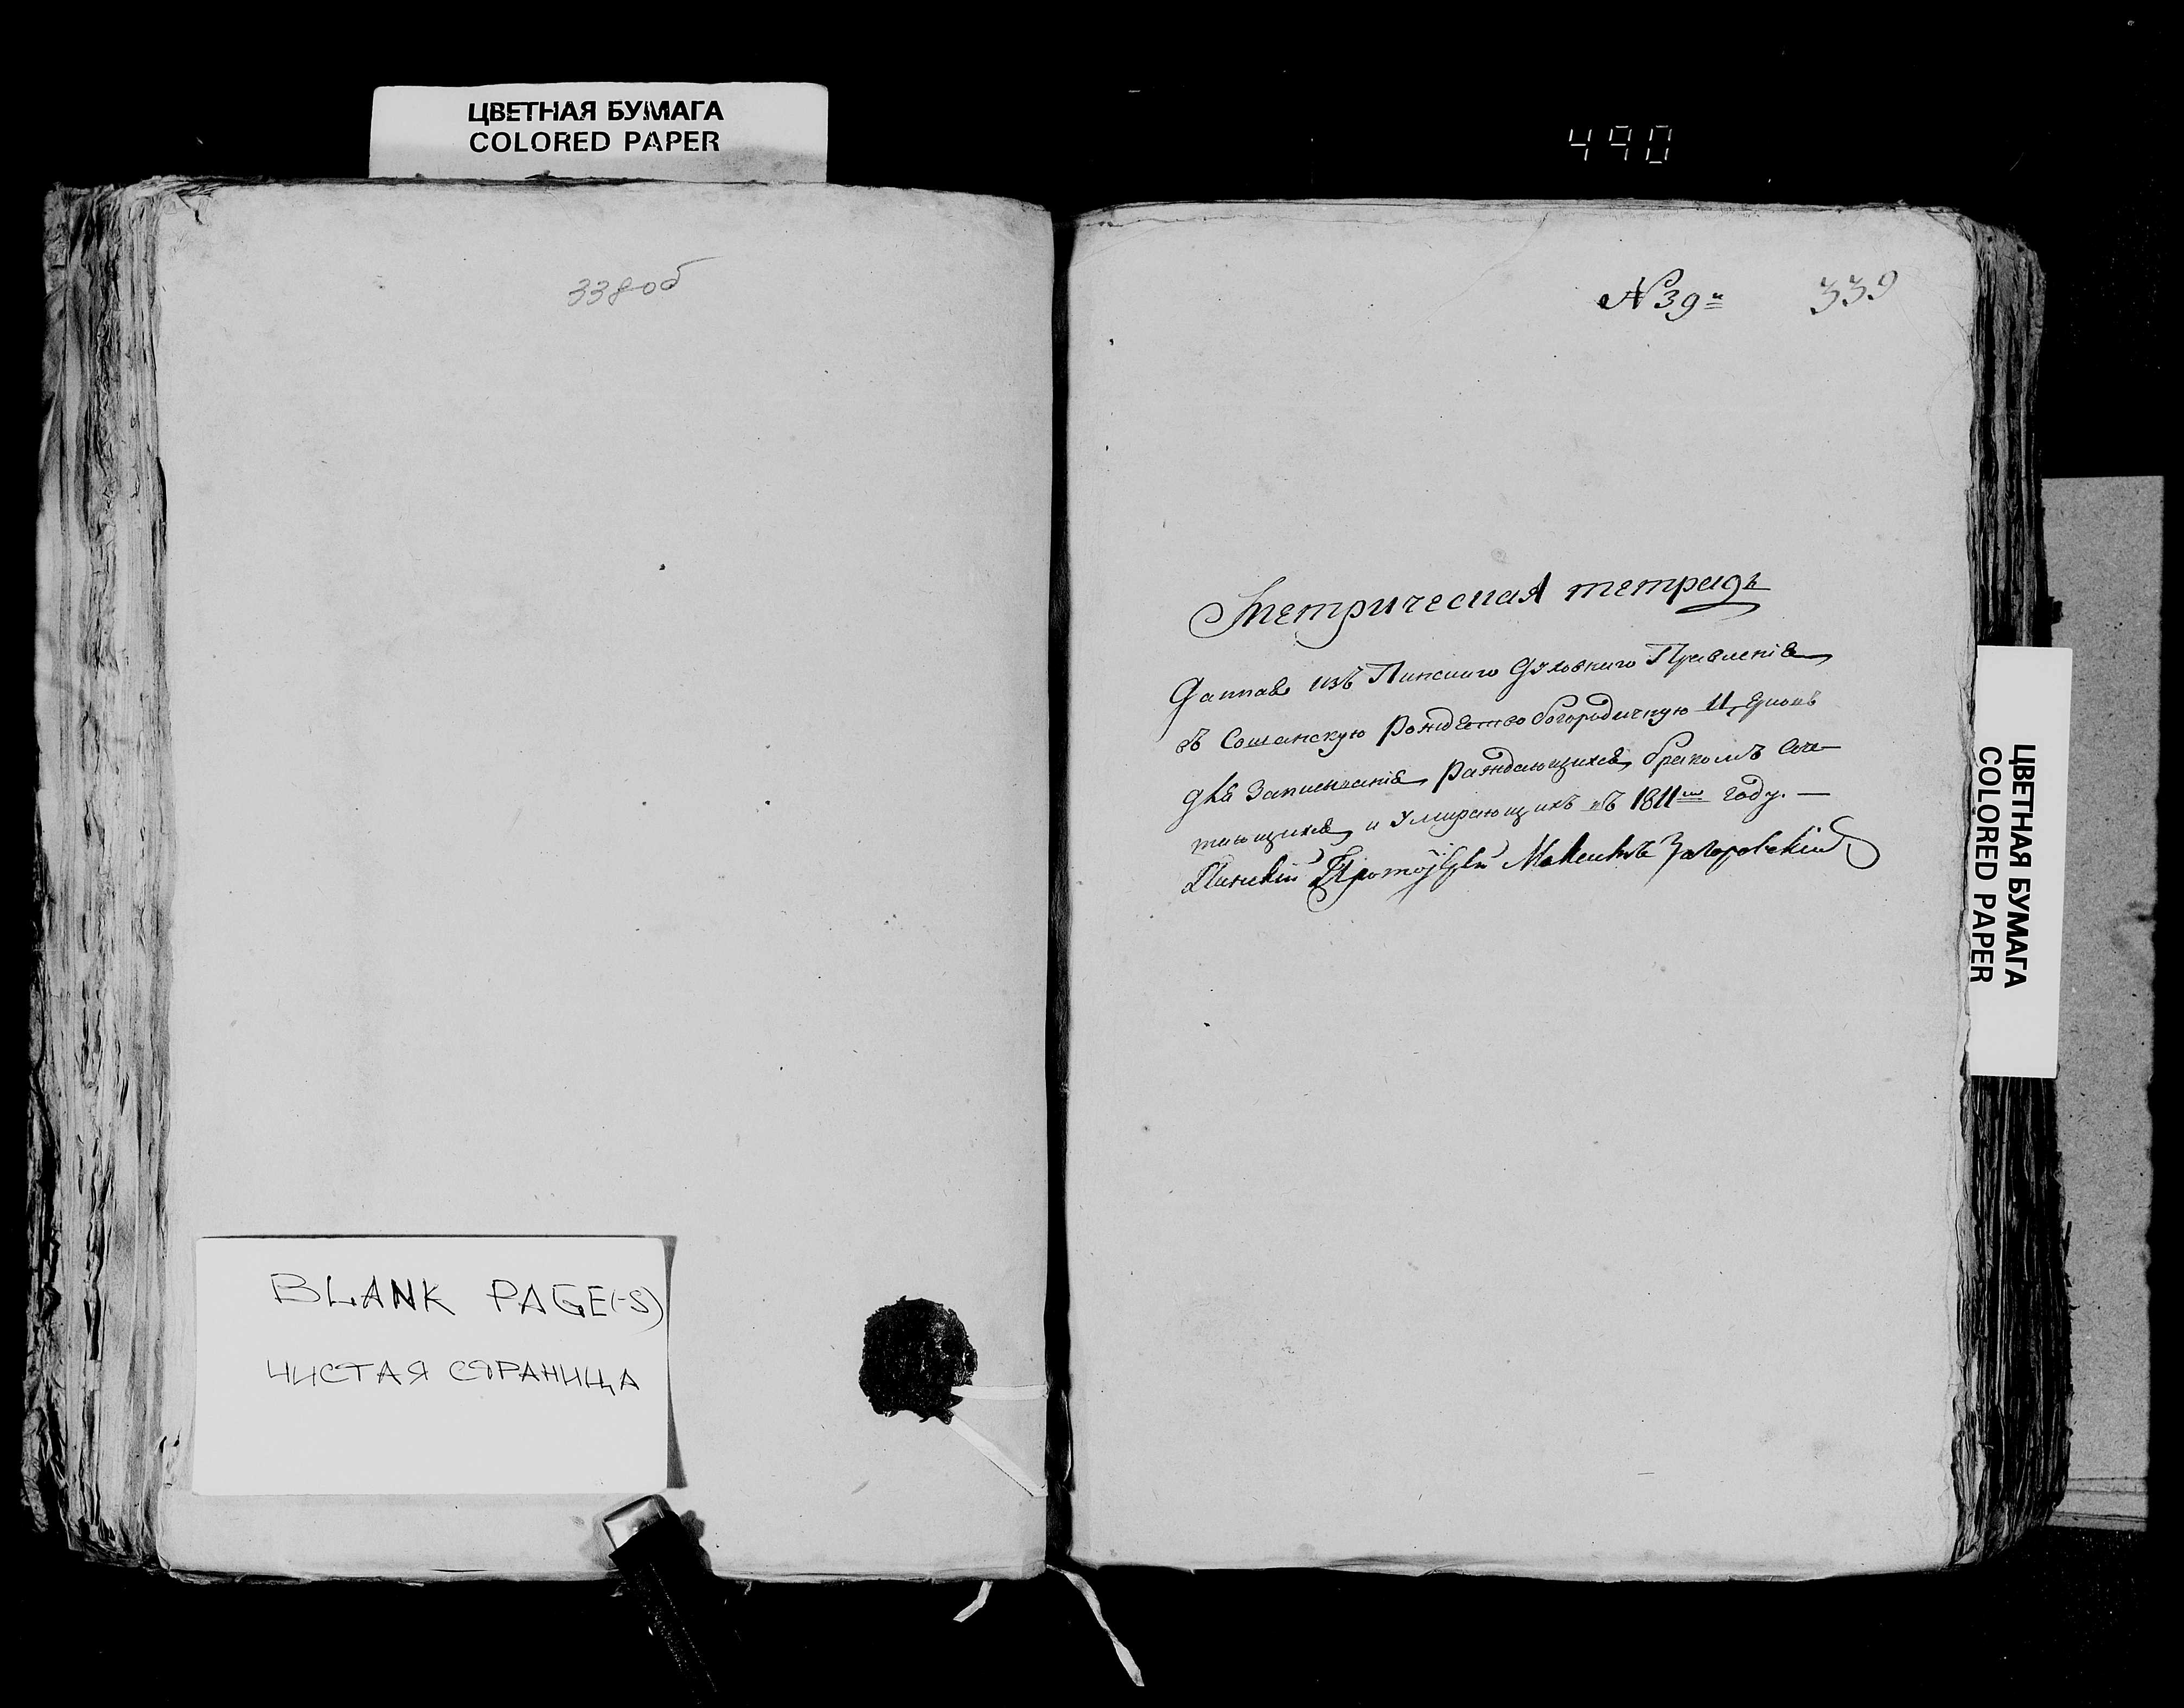 ЦВЕТНАЯ БУМАГА
COLORED PAPER
490
338об
N 39й
339
Метрическая тетрадь
Даннаѧ изъ Пинскаго Духовнаго Правленіѧ
въ Сошанскую рождество богородичную Церковь
длѧ записыванія раждающихсѧ, бракомъ соче
тающихсѧ, и умирающихъ въ 1811мъ году. —
Пинскій Протоіерей
ЦВЕТНАЯ БУМАГА
COLORED PAPER
BLANK PAGE(-S)
ЧИСТАЯ СТРАНИЦА